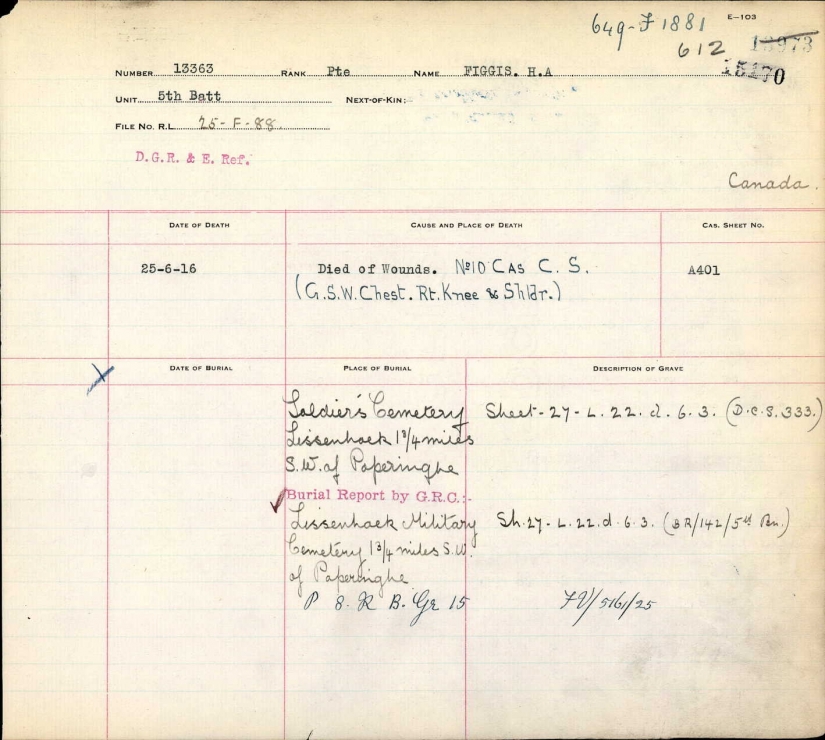 649-F 1881
E-103
612
18973
15170
NUMBER 13363 RANK Pte NAME FIGGIS. H.A
UNIT 5th Batt NEXT-OF-KIN:
FILE No. R.L. 25-F-88.
D.G.R. & E. Ref.
Canada.
DATE OF DEATH CAUSE AND PLACE OF DEATH CAS. SHEET No.
25-6-16 Died of Wounds. No 10 CAS C. S. A401
(G.S.W. Chest. Rt. Knee & Shldr.)
DATE OF BURIAL PLACE OF BURIAL DESCRIPTION OF GRAVE
Soldier's Cemetery Sheet-27-L.22.d.6.3. (D.C.S.333.)
Lissenhoek 1 3/4 miles
S.W. of Poperinghe
Burial Report by G.R.C.:-
Lissenhoek Military Sh.27-L.22.d.6.3. (BR/142/5th Bn.)
Cemetery 1 3/4 miles S.W.
of Poperinghe
P 8. R B. Gr 15